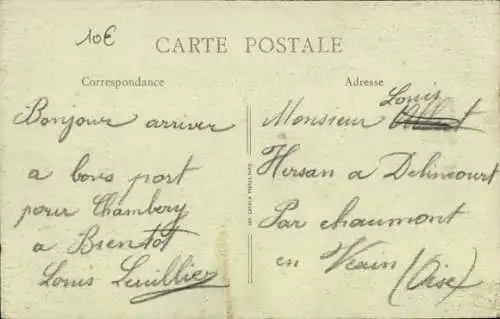 10€
CARTE POSTALE
Correspondance
Bonjour arriver
a bons port
pour Chambery
a Bientot
Louis Lhuillier
Adresse
Louis
Monsieur
Hersan a Delincourt
Par chaumont
en Vexin (Oise)